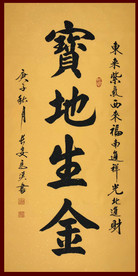 東来紫氣西来福南進祥光北進財
寶地生金
庚子秋月 書